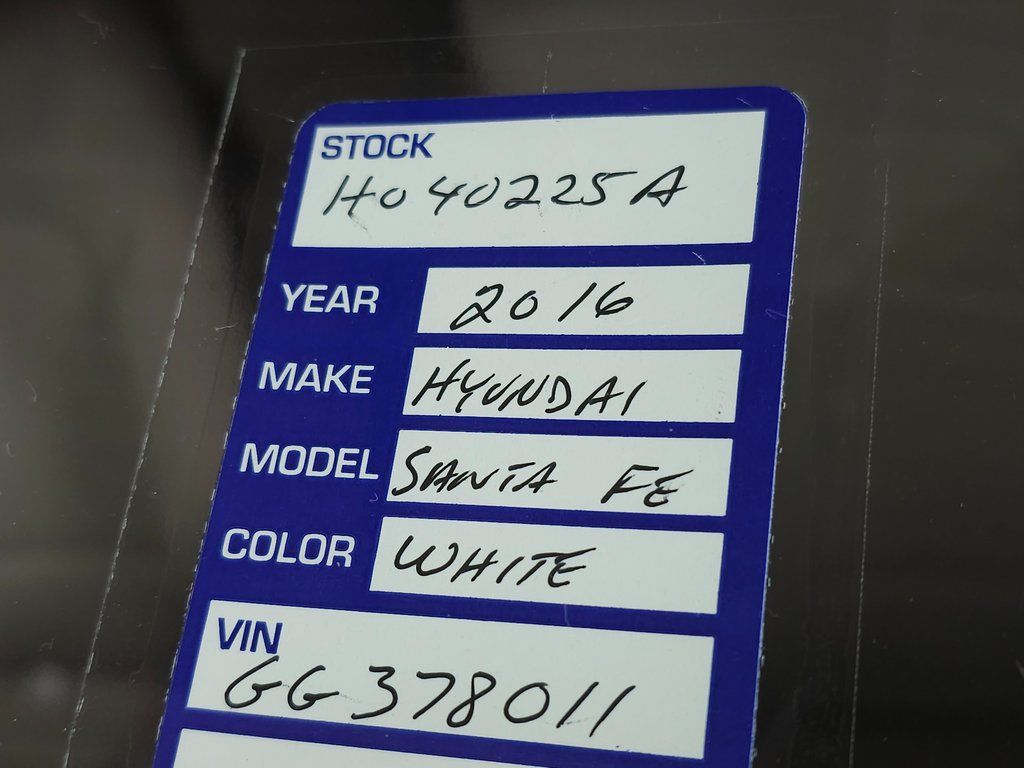 STOCK
HO40225A
YEAR 2016
MAKE HYUNDAI
MODEL SANTA FE
COLOR WHITE
VIN
GG378011